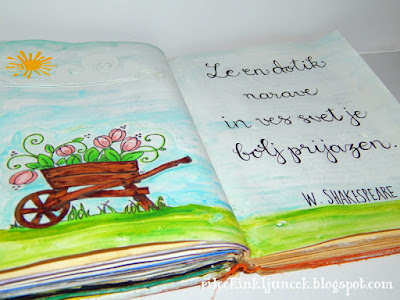 Le en dotik
narave
in ves svet je
bolj prijazen.
W. SHAKESPEARE
pikokinkljuncek.blogspot.com